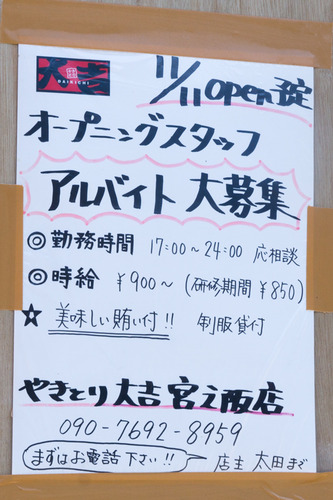 大吉
DAIKICHI
11/11 open予定
オープニングスタッフ
アルバイト 大募集
◎勤務時間 17:00~24:00 応相談
◎時給 ¥900~ (研修期間 ¥850)
☆ 美味しい賄い付!! 制服貸付
やきとり大吉 宮之阪店
090-7692-8959
まずはお電話下さい!!
店主 太田まで